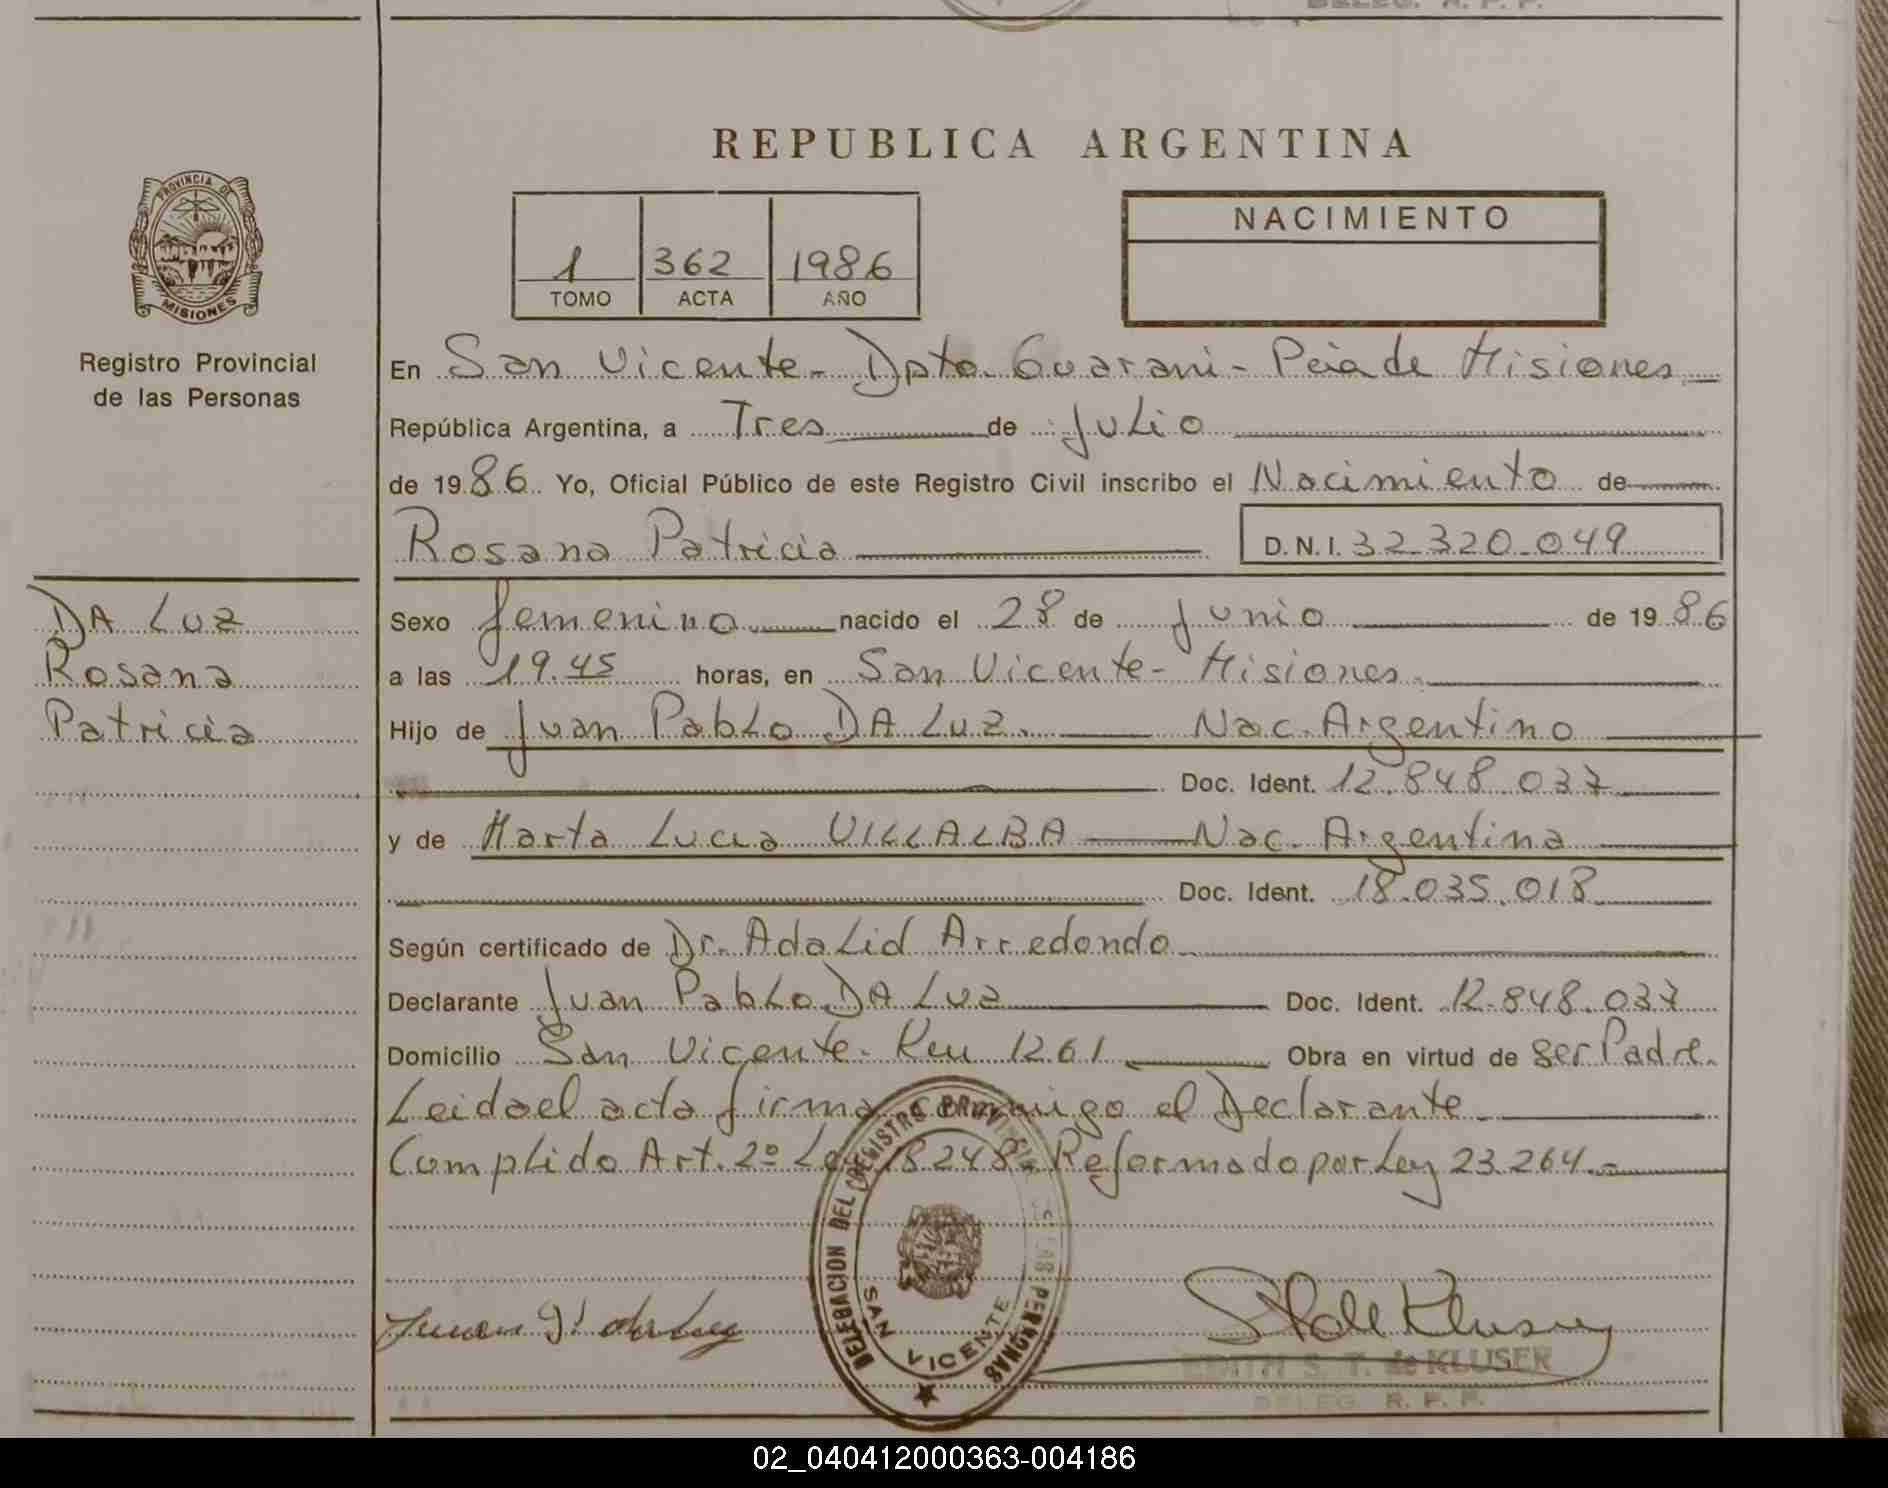 DELEG. R. P. P.
REPUBLICA ARGENTINA
PROVINCIA DE
MISIONES
Registro Provincial
de las Personas
1 362 1986
TOMO ACTA AÑO
NACIMIENTO
En San Vicente - Dpto. Guarani - Pcia de Misiones
República Argentina, a Tres de Julio
de 1986 Yo, Oficial Público de este Registro Civil inscribo el Nacimiento de
Rosana Patricia D.N.I. 32.320.049
DA LUZ
Rosana
Patricia
Sexo femenino nacido el 28 de junio de 1986
a las 19.45 horas, en San Vicente - Misiones.
Hijo de Juan Pablo DA LUZ. Nac. Argentino
Doc. Ident. 12.848.037
y de Marta Lucia VILLALBA Nac. Argentina
Doc. Ident. 18.035.018
Según certificado de Dr. Adalid Arredondo
Declarante Juan Pablo DA LUZ Doc. Ident. 12.848.037
Domicilio San Vicente - Km 1261 Obra en virtud de ser Padre.
Leida el acta firma conmigo el Declarante
Cumplido Art. 2º Ley 18248 - Reformado por Ley 23.264.-
DELEGACION DEL REGISTRO PROVINCIAL DE LAS PERSONAS
SAN VICENTE
EDITH S. T. de KLUSER
DELEG. R. P. P.
02_040412000363-004186